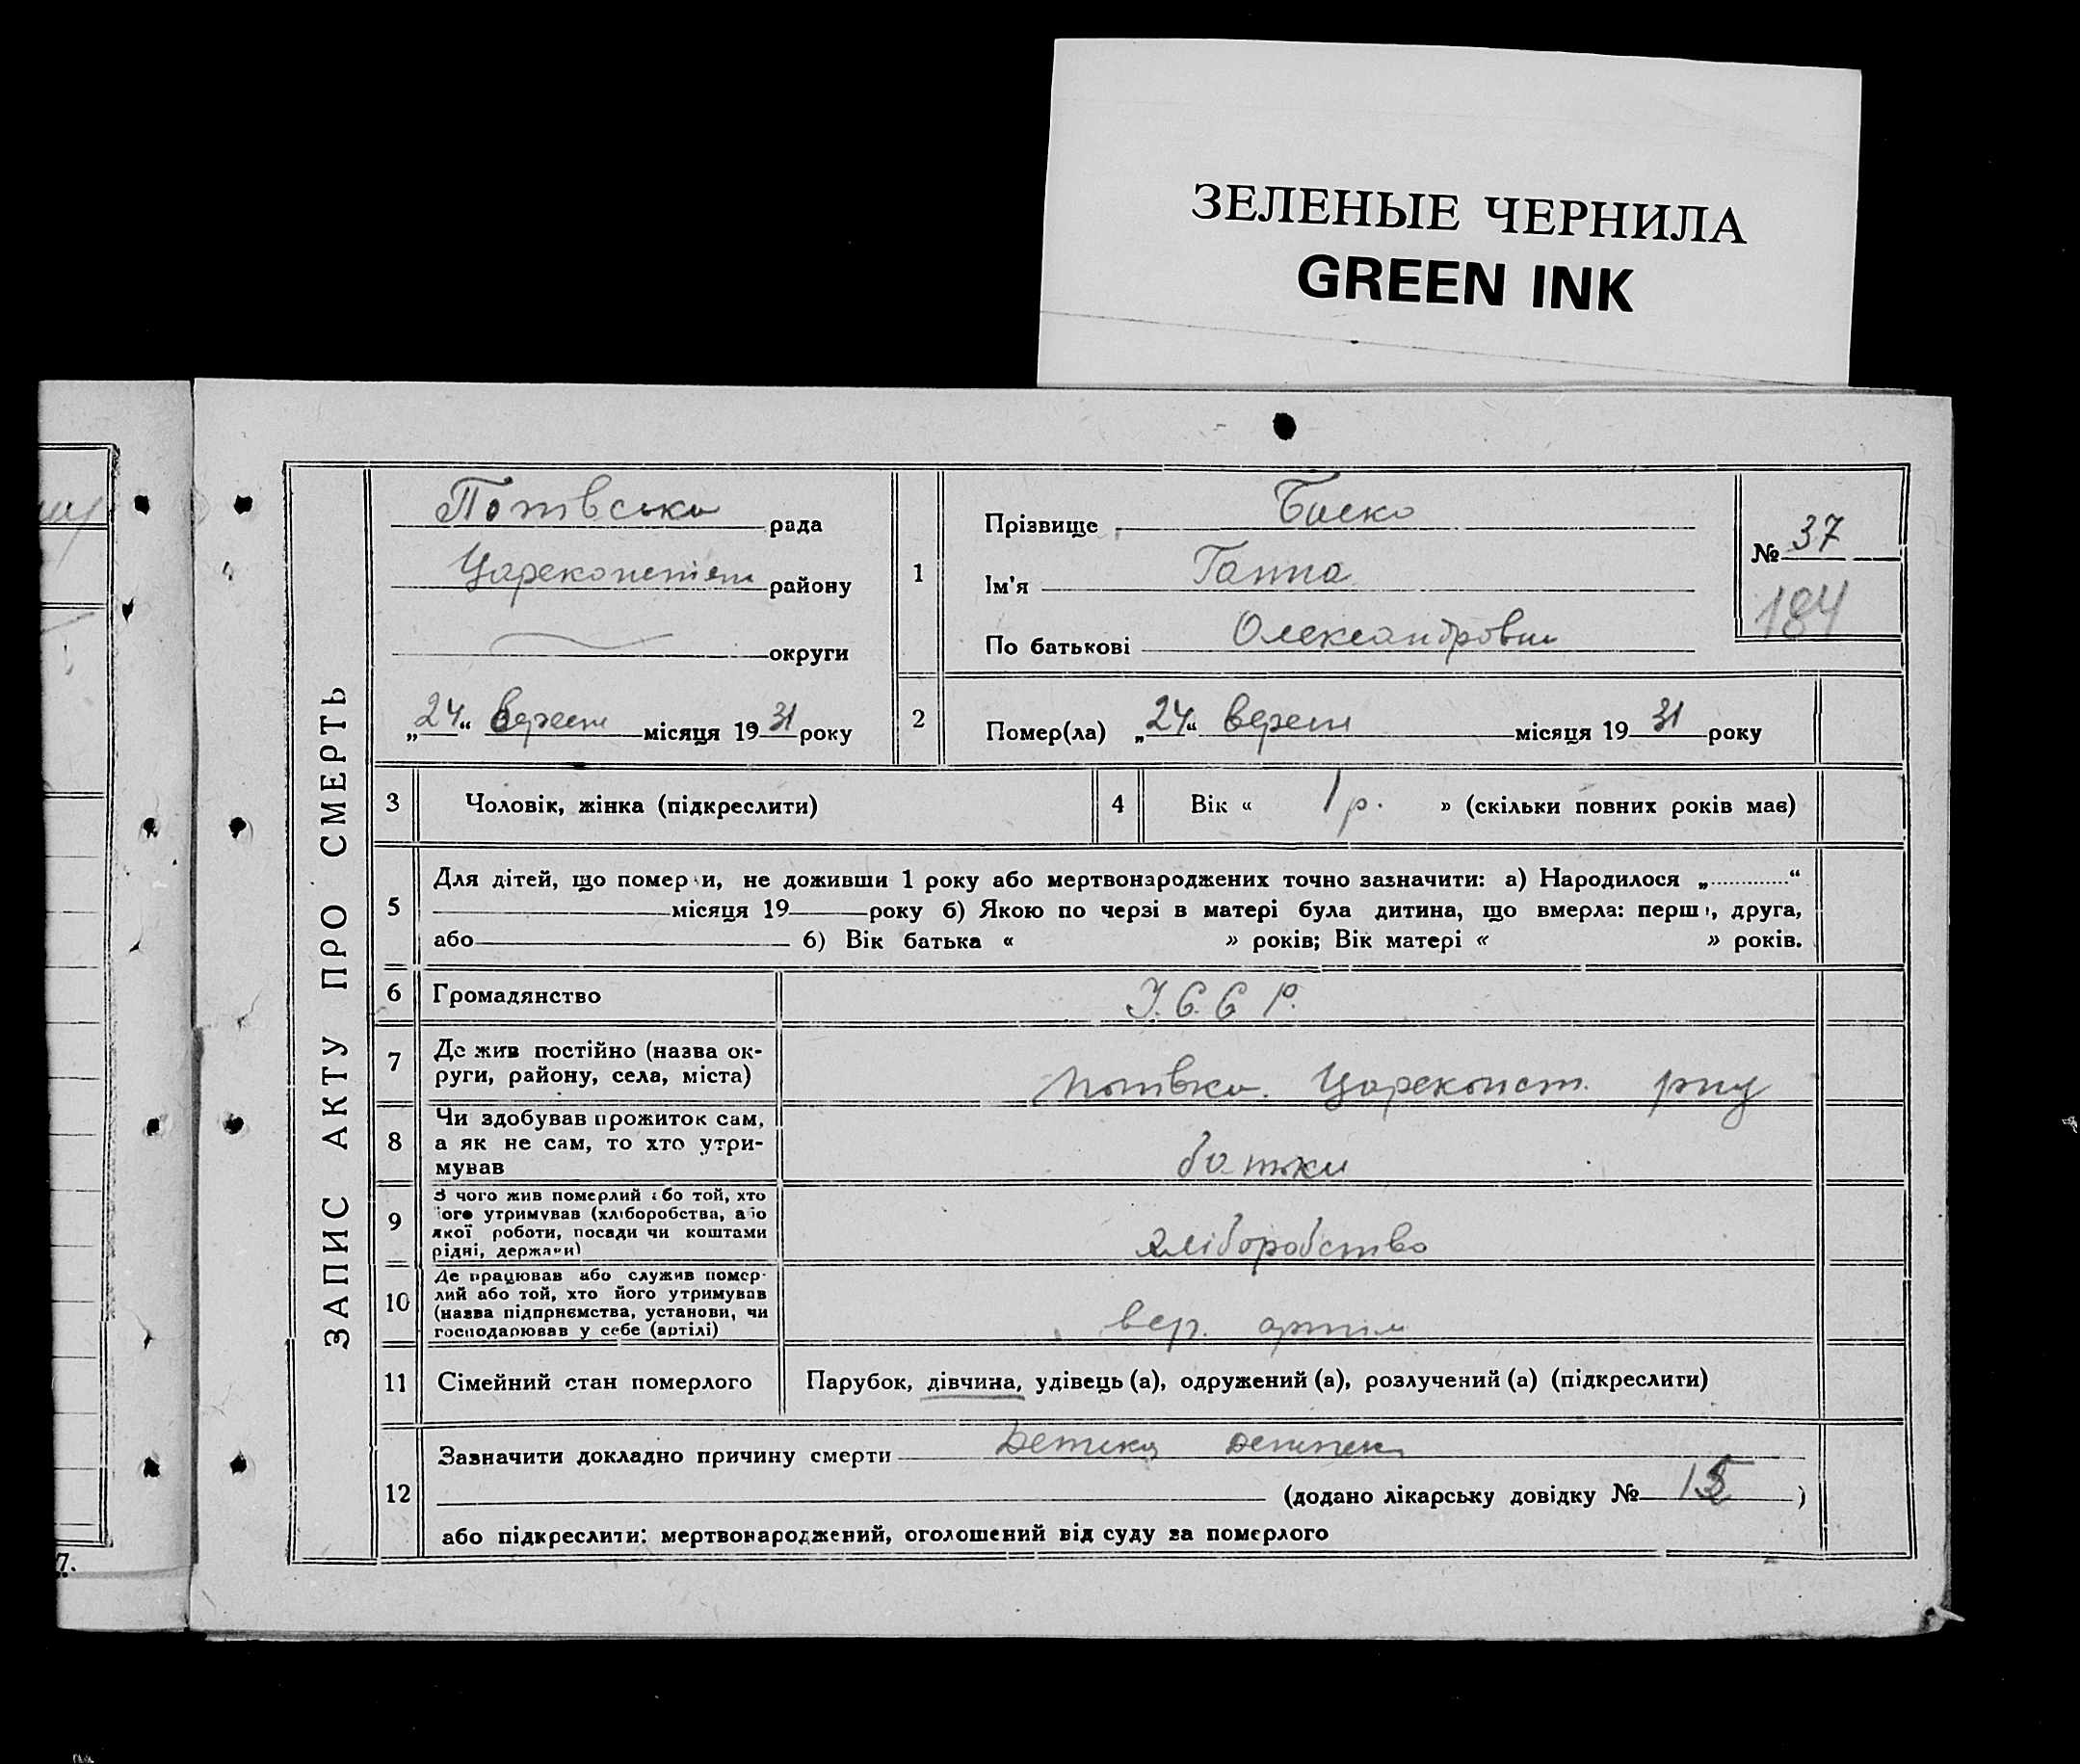 ЗЕЛЕНЫЕ ЧЕРНИЛА
GREEN INK
ЗАПИС АКТУ ПРО СМЕРТЬ
Потівська рада
району
округи
„24“ вересн місяця 1931 року
1
Прізвище Баско
Ім'я Ганна
По батькові Олександровна
№ 37
184
2
Помер(ла) „24“ вересн місяця 1931 року
3 Чоловік, жінка (підкреслити)
4 Вік « 1 р. » (скільки повних років має)
5 Для дітей, що померли, не доживши 1 року або мертвонароджених точно зазначити: а) Народилося „............“
місяця 19 року б) Якою по черзі в матері була дитина, що вмерла: перша, друга,
або б) Вік батька « » років; Вік матері « » років.
6 Громадянство У.С.С.Р.
7 Де жив постійно (назва ок-
руги, району, села, міста)
Потівка. Цареконст. рну
8 Чи здобував прожиток сам,
а як не сам, то хто утри-
мував
батьки
9 З чого жив померлий або той, хто
його утримував (хліборобства, або
якої роботи, посади чи коштами
рідні, держави)
хліборобство
10 Де працював або служив помер-
лий або той, хто його утримував
(назва підприємства, установи, чи
господарював у себе (артілі)
артіли
11 Сімейний стан померлого Парубок, дівчина, удівець (а), одружений (а), розлучений (а) (підкреслити)
12 Зазначити докладно причину смерти
(додано лікарську довідку № )
або підкреслити: мертвонароджений, оголошений від суду за померлого
7.